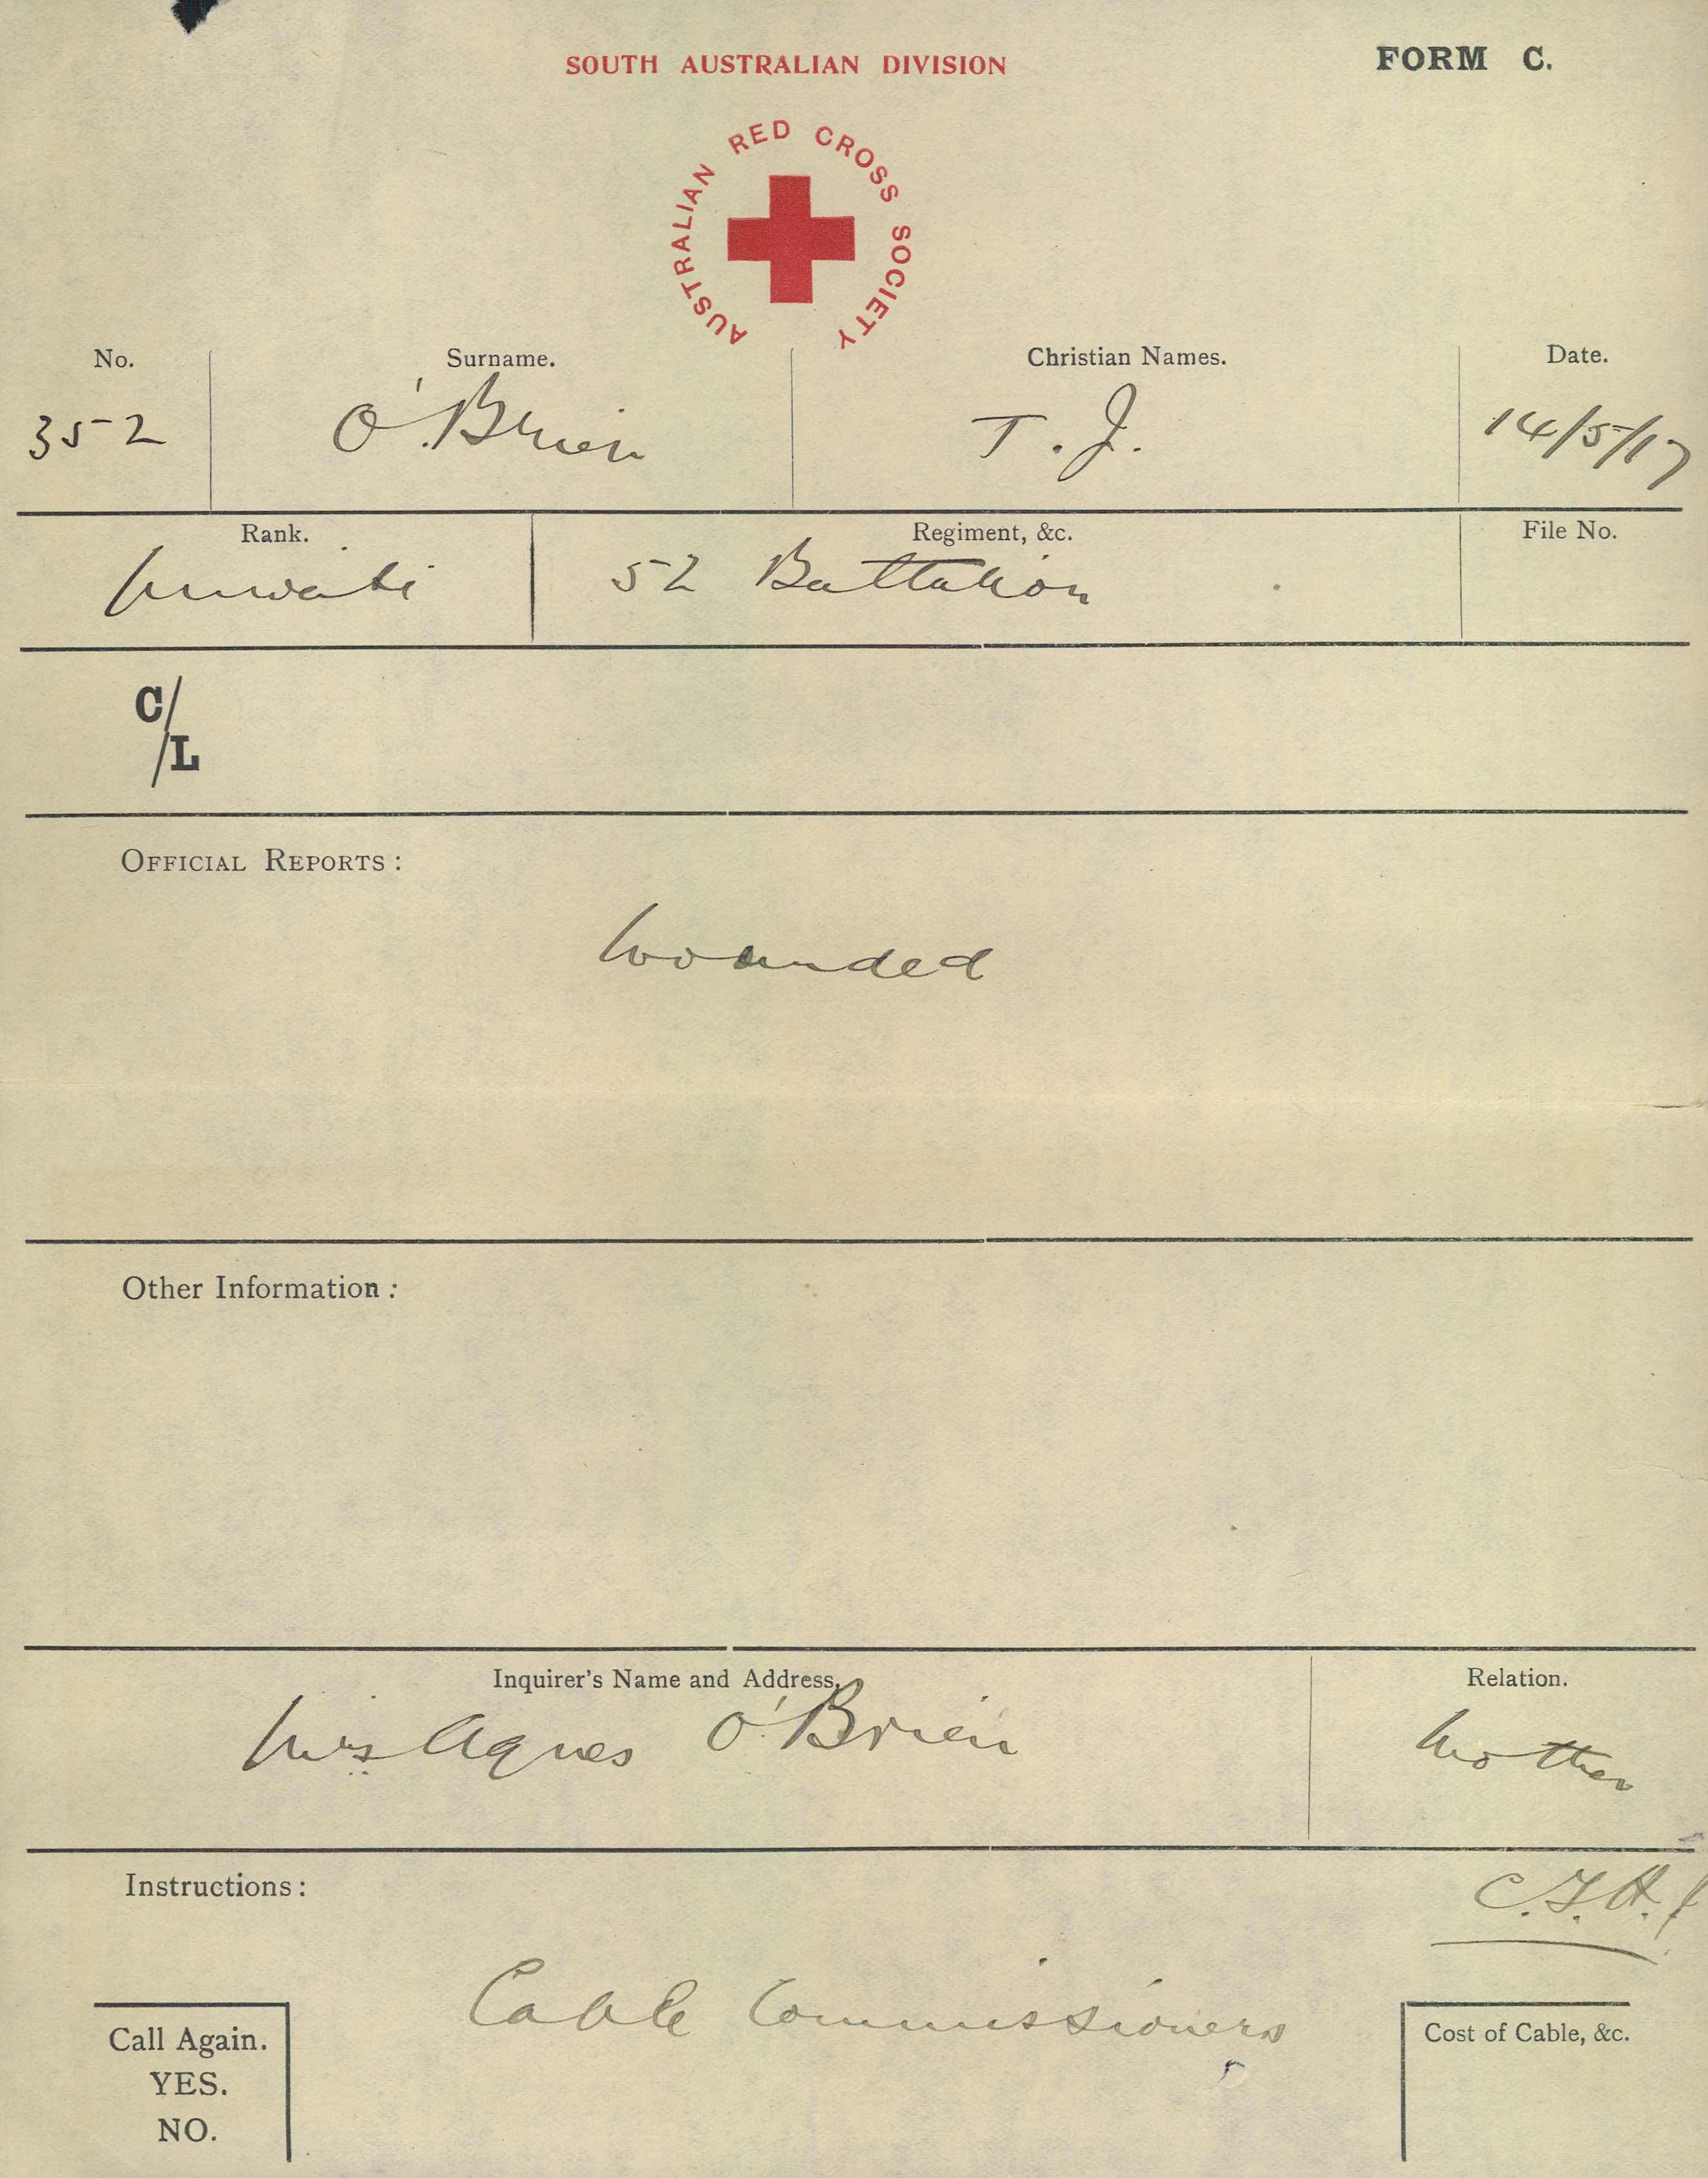 SOUTH AUSTRALIAN DIVISION FORM C.
AUSTRALIAN RED CROSS SOCIETY
No. Surname. Christian Names. Date.
352 O'Brien T. J. 14/5/17
Rank. Regiment, &c. File No.
Private 52 Battalion
C/L
OFFICIAL REPORTS:
Wounded
Other Information:
Inquirer's Name and Address. Relation.
Mrs Agnes O'Brien Mother
Instructions:
Cable Commissioners
Call Again. Cost of Cable, &c.
YES.
NO.